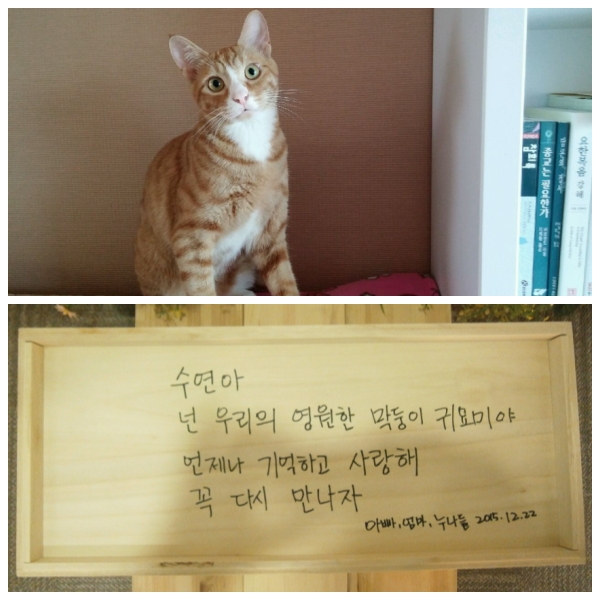 종교는 필요한가
요한복음 강해
수연아
넌 우리의 영원한 막둥이 귀요미야
언제나 기억하고 사랑해
꼭 다시 만나자
아빠, 엄마, 누나들 2015.12.22